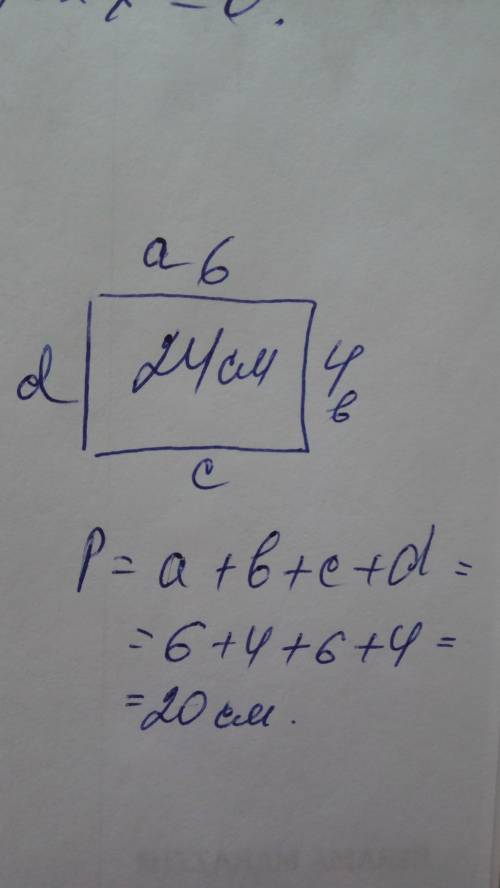 a 6
d 24 см 4
в
c
P = a + в + c + d =
= 6 + 4 + 6 + 4 =
= 20 см.